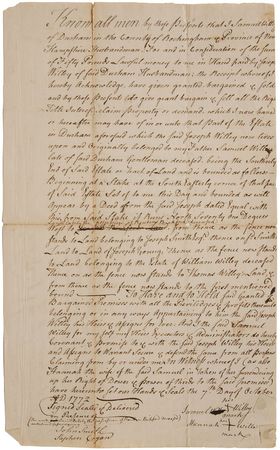 Know all men by these Presents that I Samuel Willey
of Durham in the County of Rockingham & Province of New
Hampshire Husbandman For and in Consideration of the Sum
of Fifty Pounds Lawful money to me in Hand paid by Joseph
Willey of said Durham Husbandman; the Receipt whereof I
hereby Acknowledge, have given granted bargained & Sold
and by these Presents do give grant bargain & sell all the Right
Title Interest claim Property or demand which I now have
or hereafter may have of in or unto that Part of the Estate
in Durham aforesaid which the said Joseph Willey now lives
upon and Originally belonged to my Father Samuel Willey
late of said Durham Gentleman deceased, being the Southerly
End of said Estate or Tract of Land and is bounded as follows
Beginning at a Stake at the South easterly corner of that Part
of said Estate Set of to me this Day and bounded as will
Appear by a Deed of from the said Joseph dated Equal with
this, from said Stake it Runs North Seventy one Degrees
West to from thence as the fence now
stands to Land belonging to Joseph Smith Esqr thence on said Smith's
Land to Land of Joseph Young, thence as the fence now stands
to Land belonging to the Estate of William Willey deceased
thence on as the fence now stands to Thomas Willey's Land &
from thence as the fence now stands to the first mentioned
bound To have and to Hold said granted &
Bargained Premises with all the Priviledges & Profits thereunto
belonging or in any ways appertaining to him the said Joseph
Willey his Heirs & Assigns for ever And I the said Samuel
Willey for my self my Heirs Executors & Administrators do hereby
Covenant & Promise to & with the said Joseph Willey his Heirs
and Assigns to Warrant Secure & defend the same from all persons
Claiming from by or under me In Witness whereof I and
Hannah the wife of the said Samuel in token of her surrendering
up her Right of Dower & Power of thirds to the said Premises
have hereunto set our Hands & Seals the 7th Day of October
AD 1772
Signed Sealed & Delivered
in Presence of
John Smith
Stephen Cogan
Samuel Willey
mark
Hannah Willey
mark